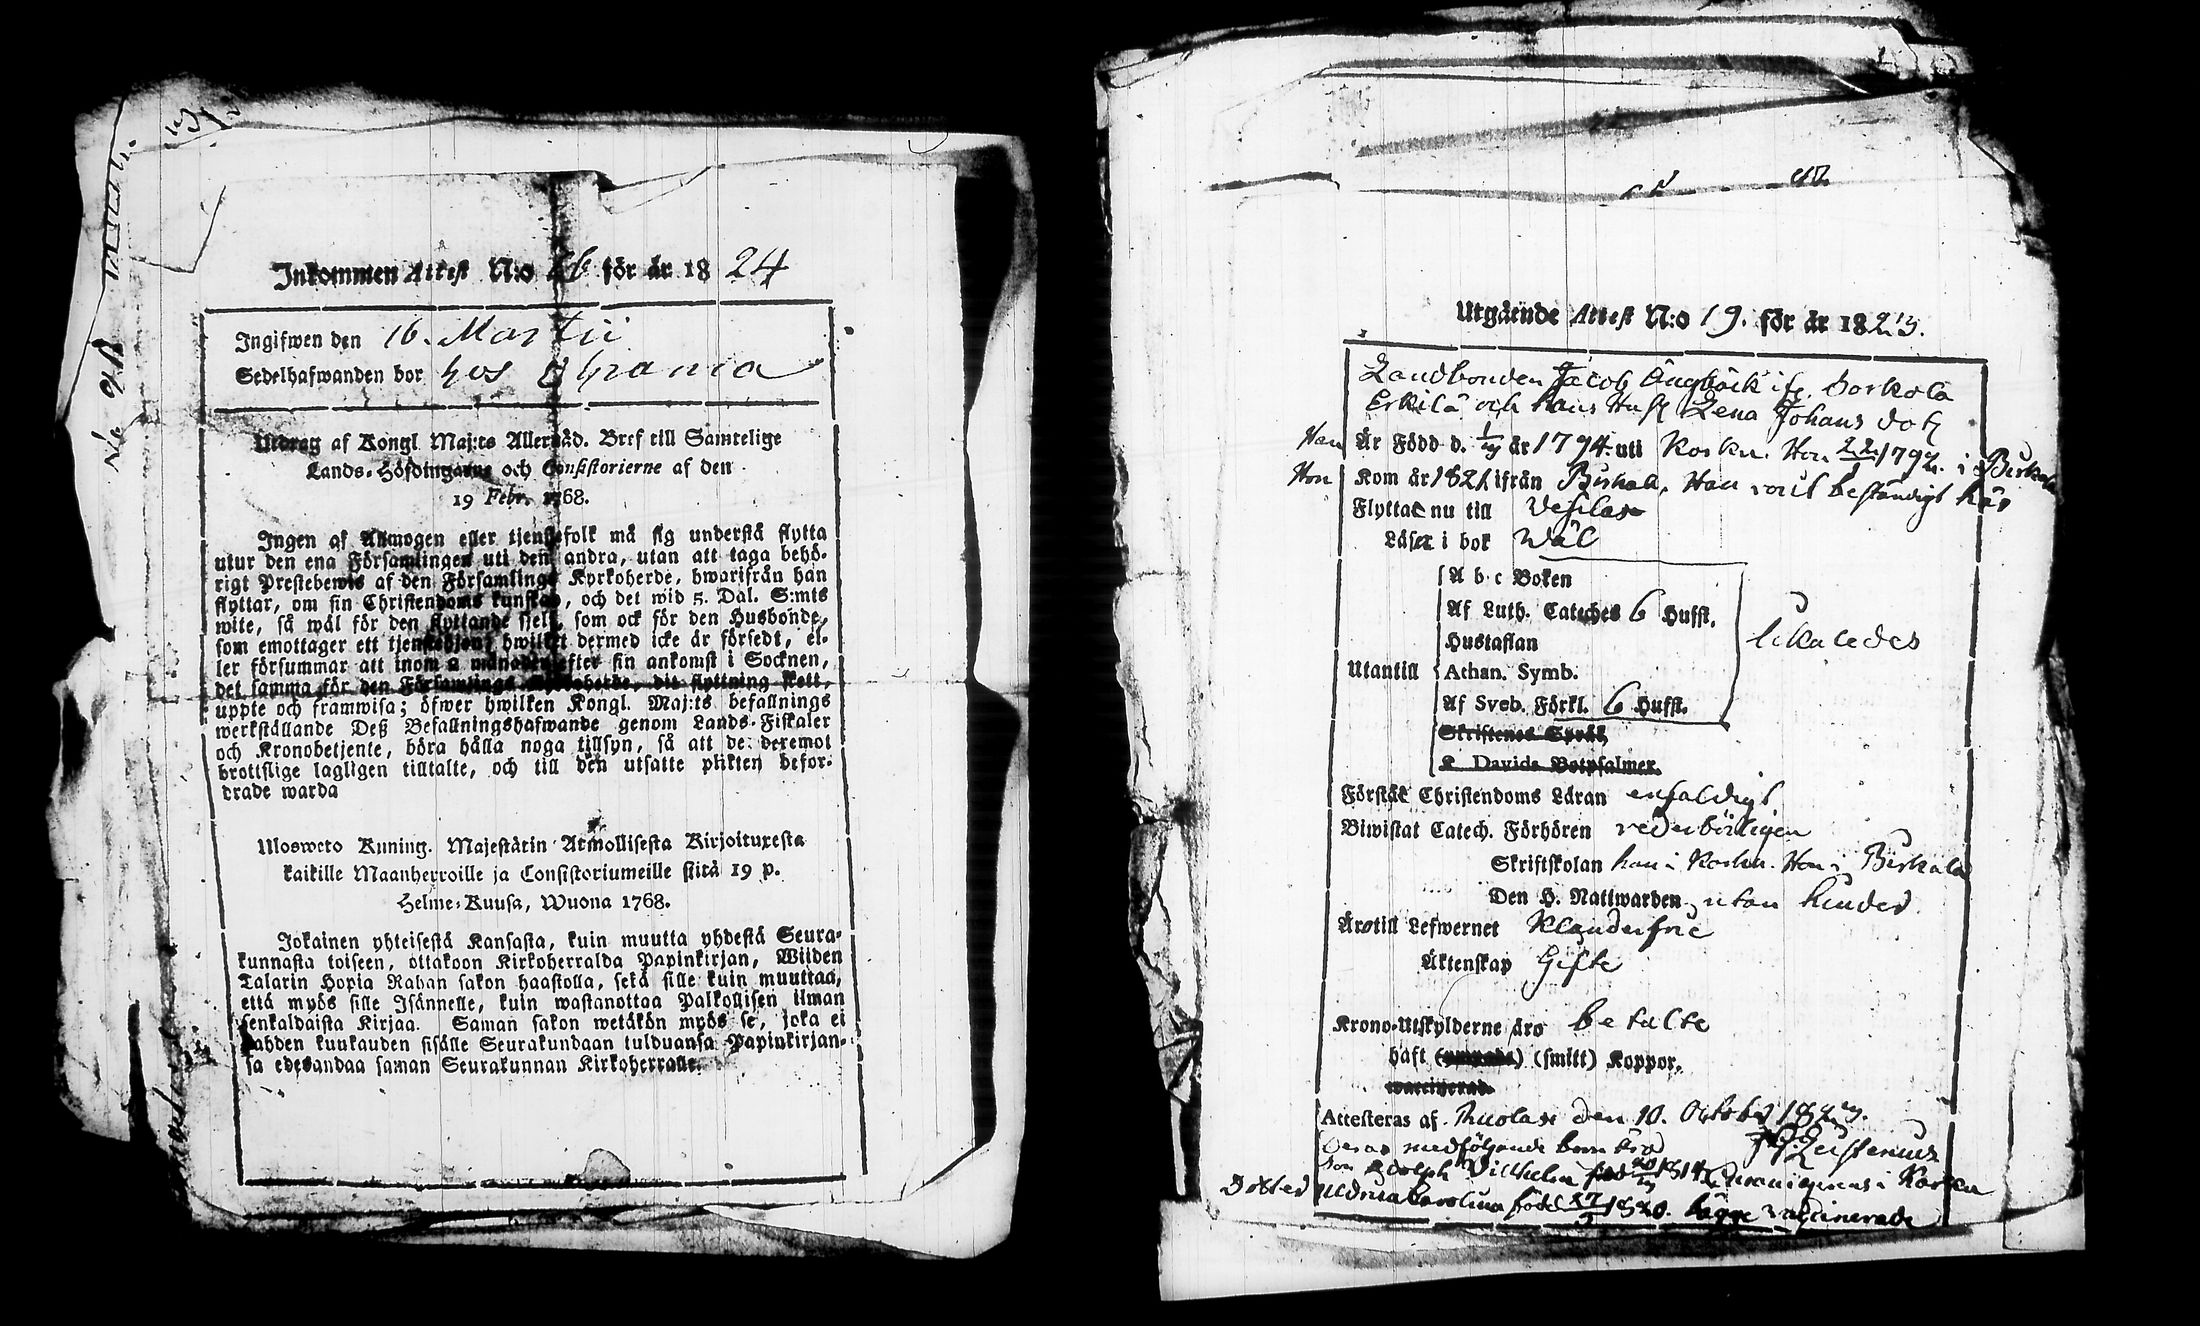 Inkommen Attest N:o för år 1824
Ingifwen den 16. Martii
Sedelhafwanden bor hos
Utdrag af Kongl Maj:ts Allernåd. Bref till Samtelige
Lands-Höfdingarne och Consistorierne af den
19 Febr. 1768.
Ingen af Allmogen eller tjenstefolk må sig understå flytta
utur den ena Församlingen uti den andra, utan att taga behö-
rigt Prestebewis af den Församlings Kyrkoherde, hwarifrån han
flyttar, om sin Christendoms kunskap, och det wid 5. Dal. S:mts
wite, så wäl för den flyttande sjelf, som ock för den Husbonde,
som emottager ett tjenstehjon, hwilket dermed icke är försedt, el-
ler försummar att inom 2 månader efter sin ankomst i Socknen,
det samma för den Församlings Kyrkoherde, dit flyttning skett,
uppte och framwisa; öfwer hwilken Kongl. Maj:ts befallnings
werkställande Deß Befallningshafwande genom Lands-Fiskaler
och Kronobetjente, böra hålla noga tillsyn, så att de deremot
brottslige lagligen tilltalte, och till den utsatte plikten befor-
drade warda
Ulosweto Kuning. Majestätin Armollisesta Kirjoituxesta
kaikille Maanherroille ja Consistoriumeille siitä 19 p.
Helme-Kuusa, Wuona 1768.
Jokainen yhteisestä Kansasta, kuin muutta yhdestä Seura-
kunnasta toiseen, ottakoon Kirkoherralda Papinkirjan, Wijden
Talarin Hopia Rahan sakon haastolla, sekä sille kuin muuttaa,
että myös sille Isännelle, kuin wastanottaa Palkollisen ilman
senkaldaista Kirjaa. Saman sakon wetäkön myös se, joka ei
kahden kuukauden sisälle Seurakundaan tulduansa Papinkirjan-
sa edesandaa saman Seurakunnan Kirkoherralle.
Utgående Attest N:o 19. för år 1823.
Landbonden Jacob Ängbäck ifr. Sorkola
Erkilä och hans Hust. Lena Johans dotr
Han Är Född d. år 1794. uti Koskis. Hon 1792. i Birkala
Hon Kom år 1821 ifrån Birkala. Han warit beständigt här
Flyttat nu till Vesilax
Läser i bok Wäl
A b c Boken
Af Luth. Cateches 6 Hufst.
Hustaflan
Utantill Athan. Symb.
Af Sveb. Förkl. 6 Hufst.
likaledes
Skriftenes Språk
Davids Botpsalmer.
Förstår Christendoms Läran enfaldigt
Biwistat Catech. Förhören wederbörligen
Skriftskolan han i Koskis. Hon i Birkala
Den H. Nattwarden utan hinder
Äro till Lefwernet Klanderfrie
Äktenskap Gifte
Krono-Utskylderne äro betalte
haft (smitt) Koppor.
waccinerad.
Attesteras af den 10. October 1823.
Deras medföljande barn äro
Son Adolph Wilhelm född 1814 i Karkku
Dotter Carolina född 27/5 1820. bägge vaccinerade